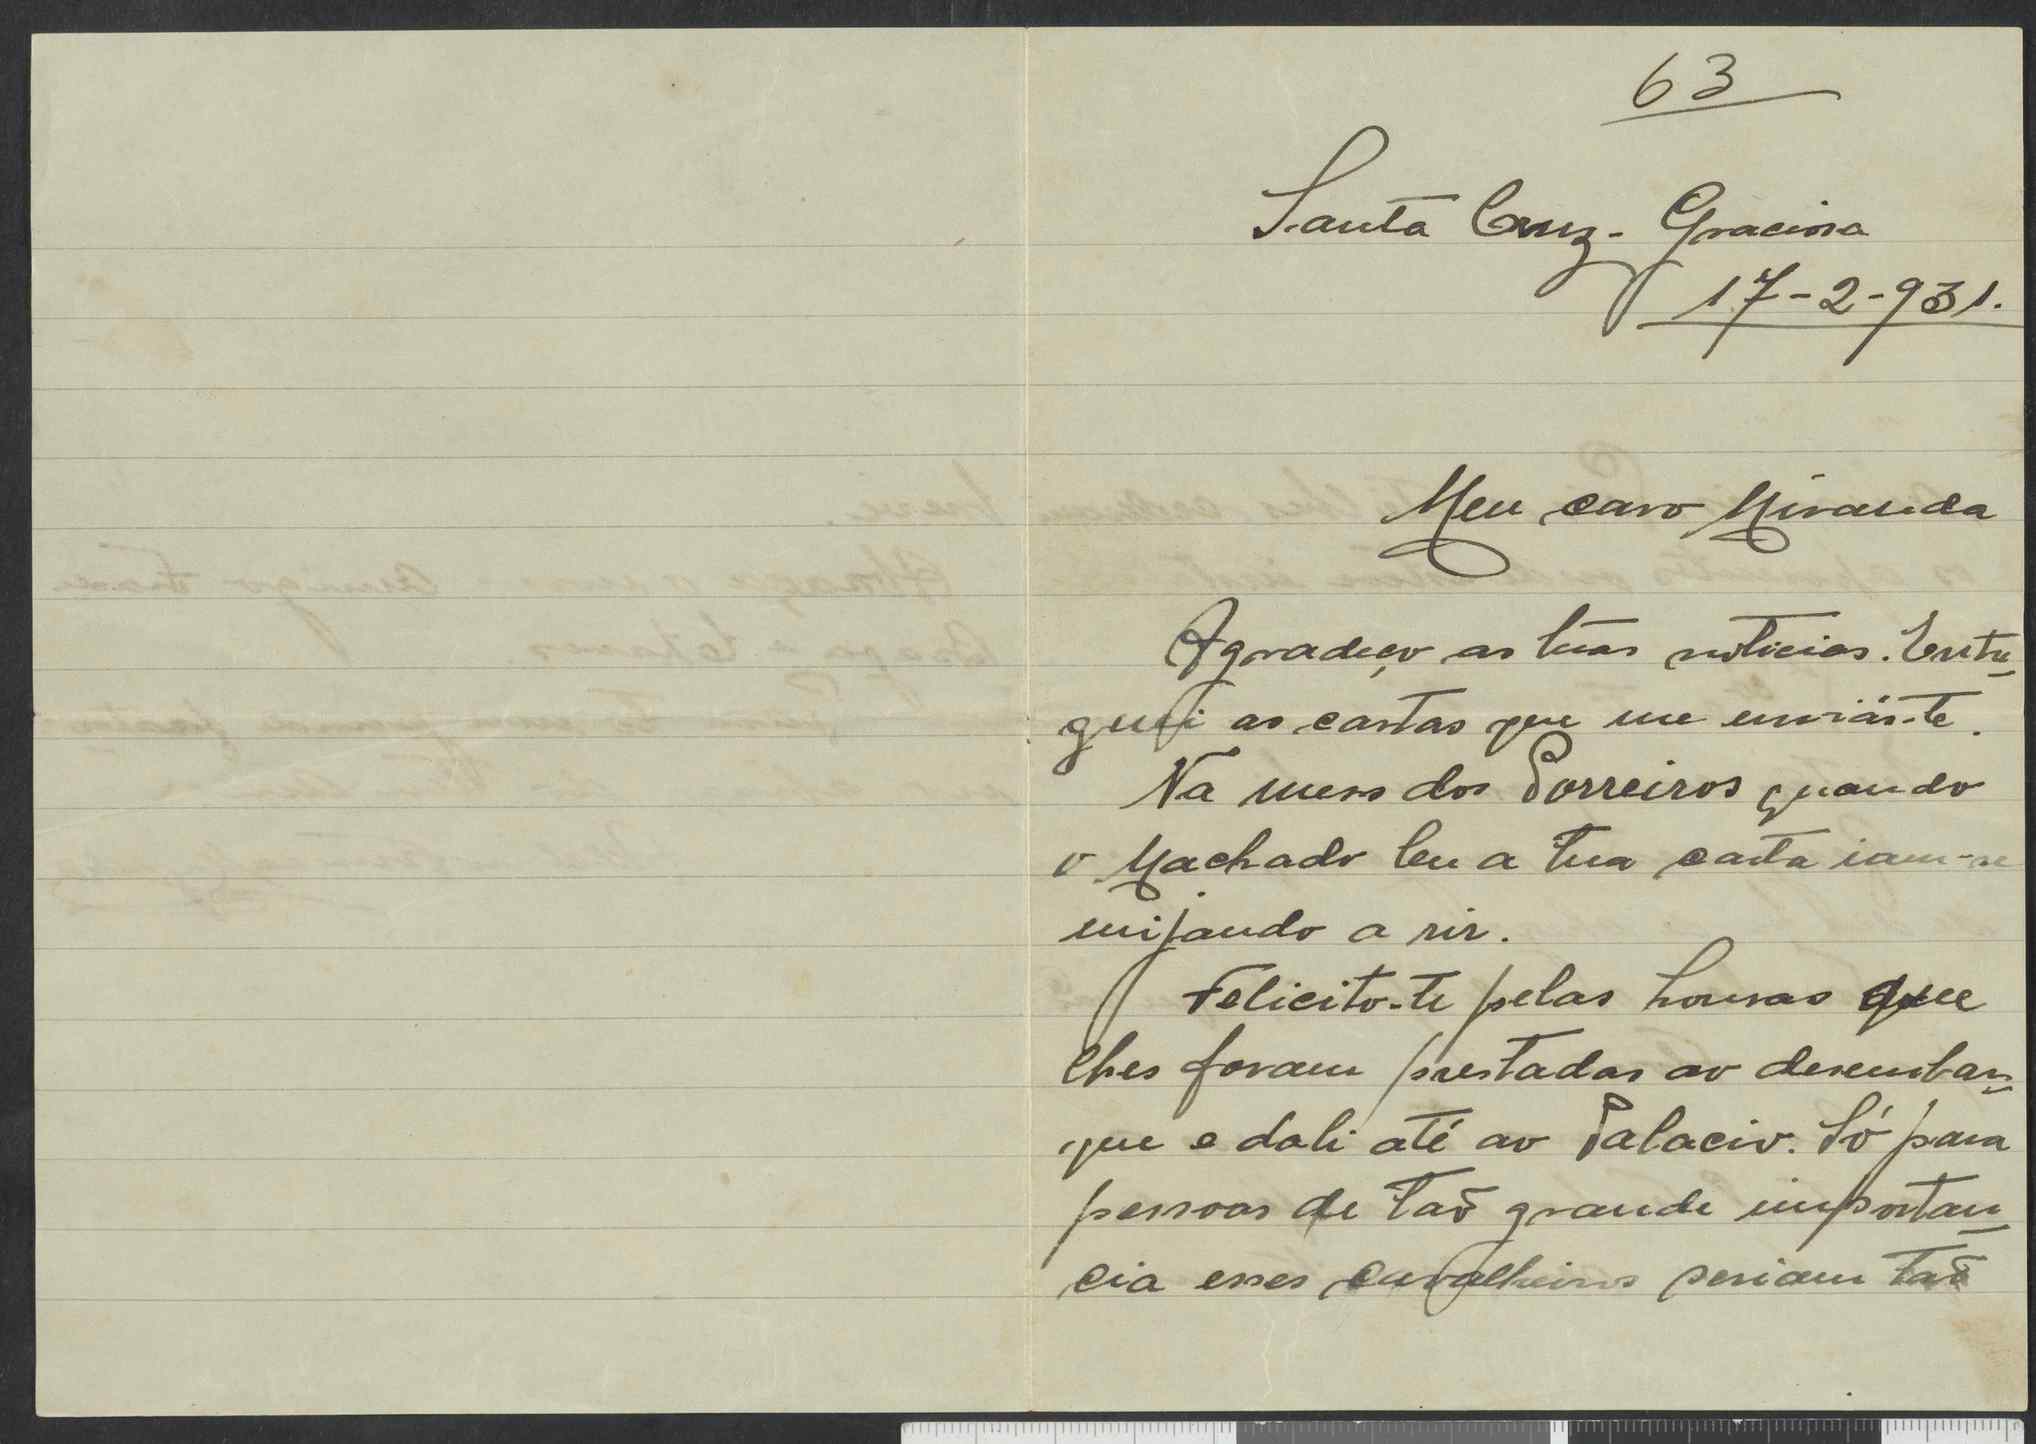 63
Santa Cruz - Graciosa
17-2-931.
Meu caro Miranda
Agradeço as tuas noticias. Entre-
guei as cartas que me enviás-te.
Na mesa dos Porreiros quando
o Machado leu a tua carta iam-se
mijando a rir.
Felicito-te pelas honras que
lhes foram prestadas ao desembar-
que e dali até ao Palacio. Só para
pessoas de taõ grande importan-
cia esses cavalheiros seriam taõ